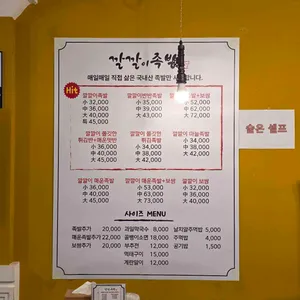 깔깔이족발
매일매일 직접 삶은 국내산 족발만 사용합니다.
Hit
깔깔이족발
小 32,000
中 36,000
大 40,000
특 45,000
깔깔이반반족발
小 35,000
中 39,000
大 43,000
족발+보쌈
小 52,000
中 62,000
大 72,000
깔깔이 쫄깃한
튀김반+매운맛반
小 36,000
中 40,000
大 45,000
깔깔이 쫄깃한
튀김족발
中 38,000
大 42,000
깔깔이 마늘족발
小 34,000
中 38,000
大 42,000
깔깔이 매운족발
小 34,000
中 38,000
大 42,000
깔깔이 매운족발+보쌈
小 53,000
中 63,000
大 73,000
깔깔이 보쌈
小 36,000
中 40,000
大 45,000
사이드 MENU
족발추가 20,000
매운족발추가 22,000
보쌈추가 20,000
과일막국수 8,000
골뱅이소면 18,000
부추전 12,000
먹태구이 15,000
계란말이 12,000
날치알주먹밥 5,000
주먹밥 4,000
공기밥 1,500
술은 셀프